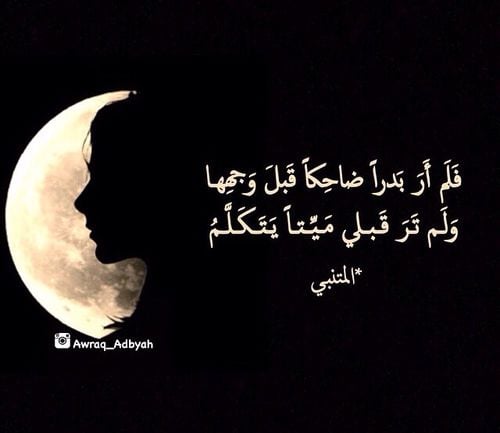 فَلَم أَرَ بَدراً ضاحِكاً قَبلَ وَجهِها
وَلَم تَرَ قَبلي مَيِّتاً يَتَكَلَّمُ
*المتنبي
Awraq_Adbyah